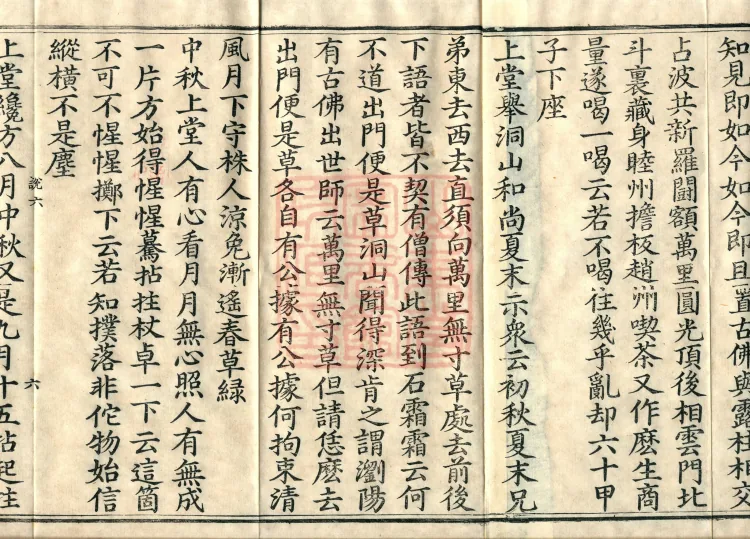 知見即如今如今即且置古佛與露柱相交
占波共新羅鬪額萬里圓光頂後相雲門北
斗裏藏身睦州擔板趙州喫茶又作麽生商
量遂喝一喝云若不喝住幾乎亂却六十甲
子下座
上堂舉洞山和尚夏末示衆云初秋夏末兄
弟東去西去直須向萬里無寸草處去前後
下語者皆不契有僧傳此語到石霜霜云何
不道出門便是草洞山聞得深肯之謂瀏陽
有古佛出世師云萬里無寸草但請恁麽去
出門便是草各自有公據有公據何拘束清
風月下守株人涼兔漸遙春草緑
中秋上堂人有心看月月無心照人有無成
一片方始得惺惺驀拈拄杖卓一下云這箇
不可不惺惺擲下云若知撲落非佗物始信
縱橫不是塵
說六
六
上堂纔方八月中秋又是九月十五拈起拄